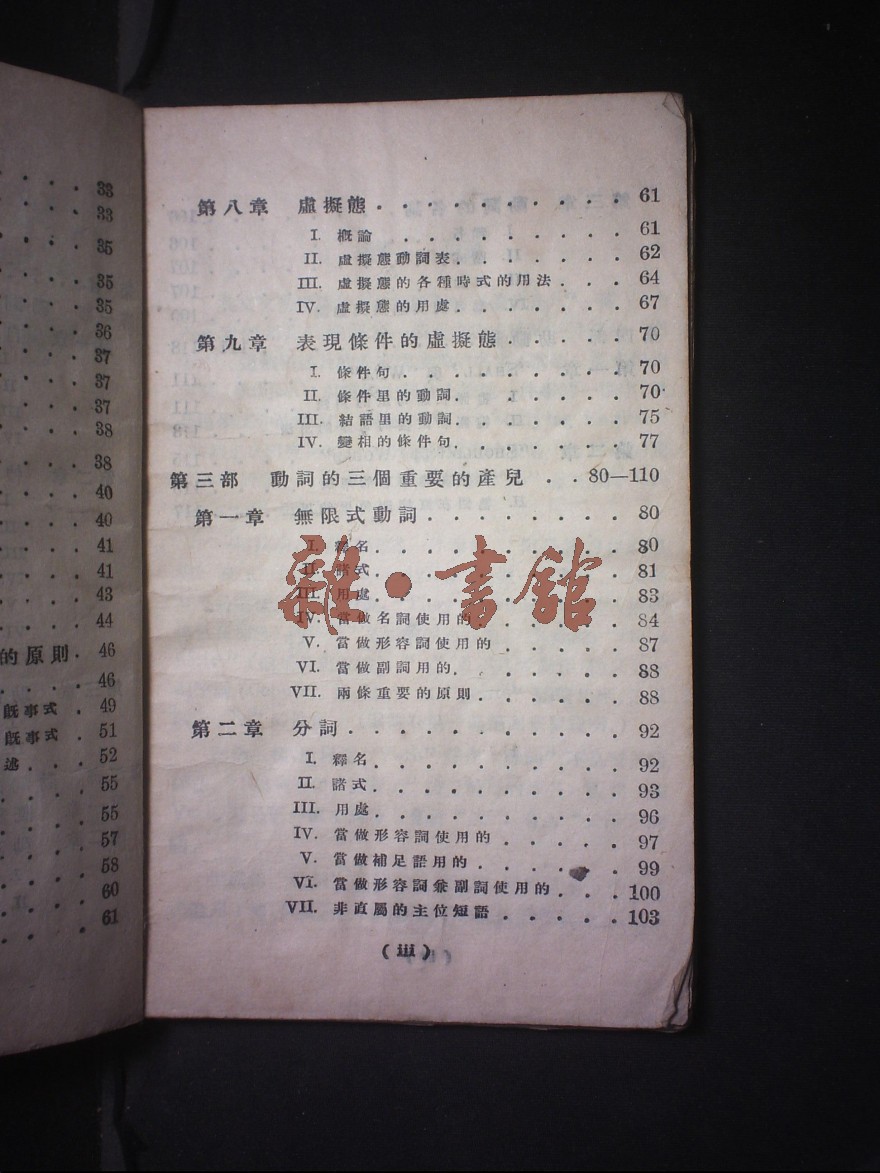 33
33
35
35
35
36
37
37
37
38
38
40
40
41
41
43
44
的原則 . 46
46
既事式 . 49
既事式 . 51
述 . . . 52
55
55
57
58
60
61
第八章 虛擬態 . . . . . . . . . . 61
I. 概論 . . . . . . . . . 61
II. 虛擬態動詞表 . . . . . . . 62
III. 虛擬態的各種時式的用法 . . . 64
IV. 虛擬態的用處 . . . . . . . 67
第九章 表現條件的虛擬態 . . . . . 70
I. 條件句 . . . . . . . . . 70
II. 條件里的動詞 . . . . . . . 70
III. 結語里的動詞 . . . . . . . 75
IV. 變相的條件句 . . . . . . . 77
第三部 動詞的三個重要的產兒 . . 80—110
第一章 無限式動詞 . . . . . . . . 80
I. 釋名 . . . . . . . . . . 80
II. 諸式 . . . . . . . . . . 81
III. 用處 . . . . . . . . . . 83
IV. 當做名詞使用的 . . . . . . 84
V. 當做形容詞使用的 . . . . . 87
VI. 當做副詞用的 . . . . . . . 88
VII. 兩條重要的原則 . . . . . . 88
第二章 分詞 . . . . . . . . . . . 92
I. 釋名 . . . . . . . . . . 92
II. 諸式 . . . . . . . . . . 93
III. 用處 . . . . . . . . . . 96
IV. 當做形容詞使用的 . . . . . 97
V. 當做補足語用的 . . . . . . 99
VI. 當做形容詞兼副詞使用的 . . . 100
VII. 非直屬的主位短語 . . . . . 103
( iii )
雜·書館